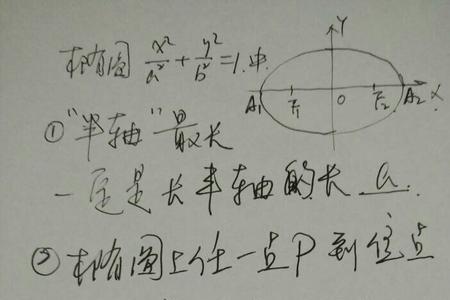 椭圆 x²/a² + y²/b² = 1.中.
Y
A₁ F₁ O F₂ A₂ X
①"半轴"最长
一定是长半轴的长 a.
②椭圆上任一点P到住点